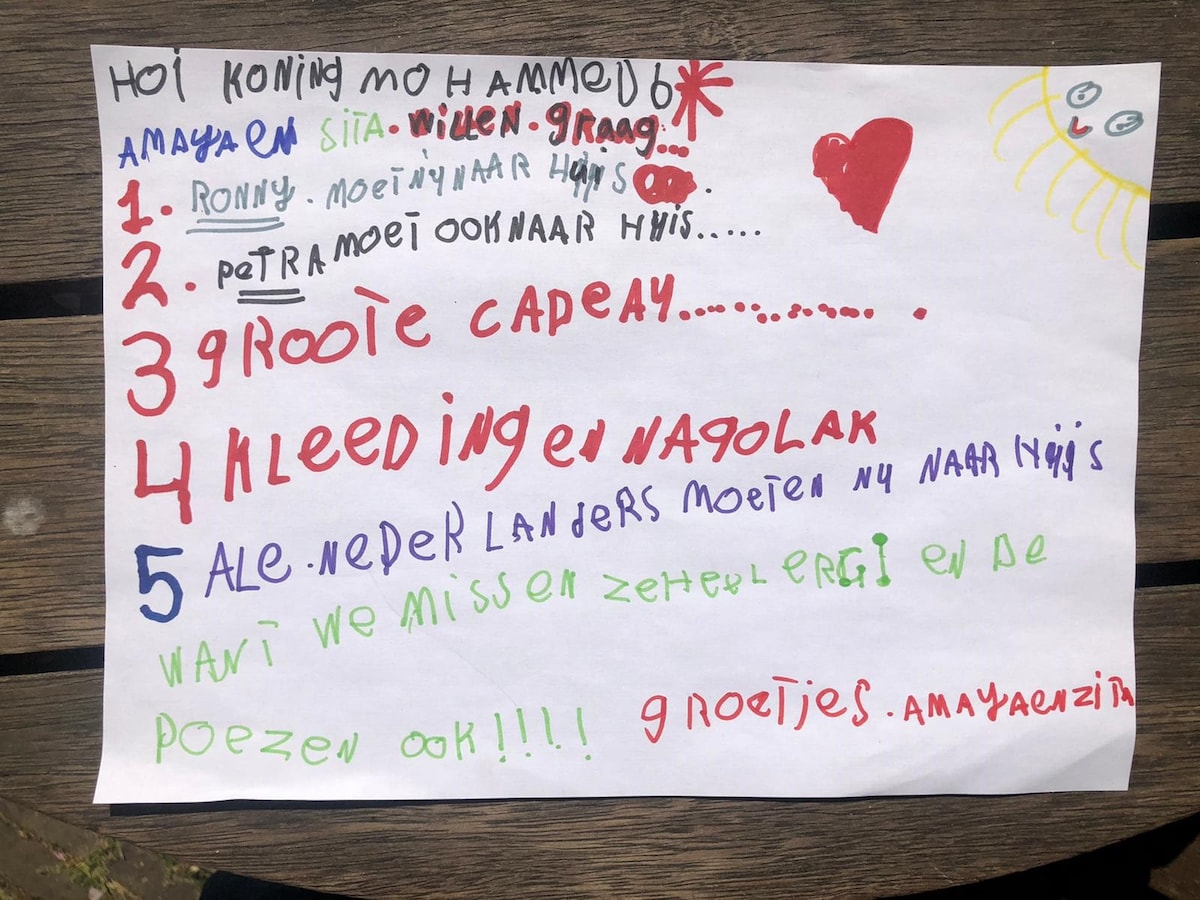 HOI KONING MOHAMMED 6
AMAYA EN SITA. WILLEN. GRAAG...
1. RONNY. MOET NY NAAR HYIS.
2. PETRA MOET OOK NAAR HYIS.....
3 GROOTE CADEAY.................
4 KLEEDING EN NAGOLAK
5 ALE. NEDERLANDERS MOETEN NY NAAR HYIS
WANT WE MISSEN ZE HEEL ERG! EN DE
POEZEN OOK!!!!
GROETJES. AMAYA EN ZITA